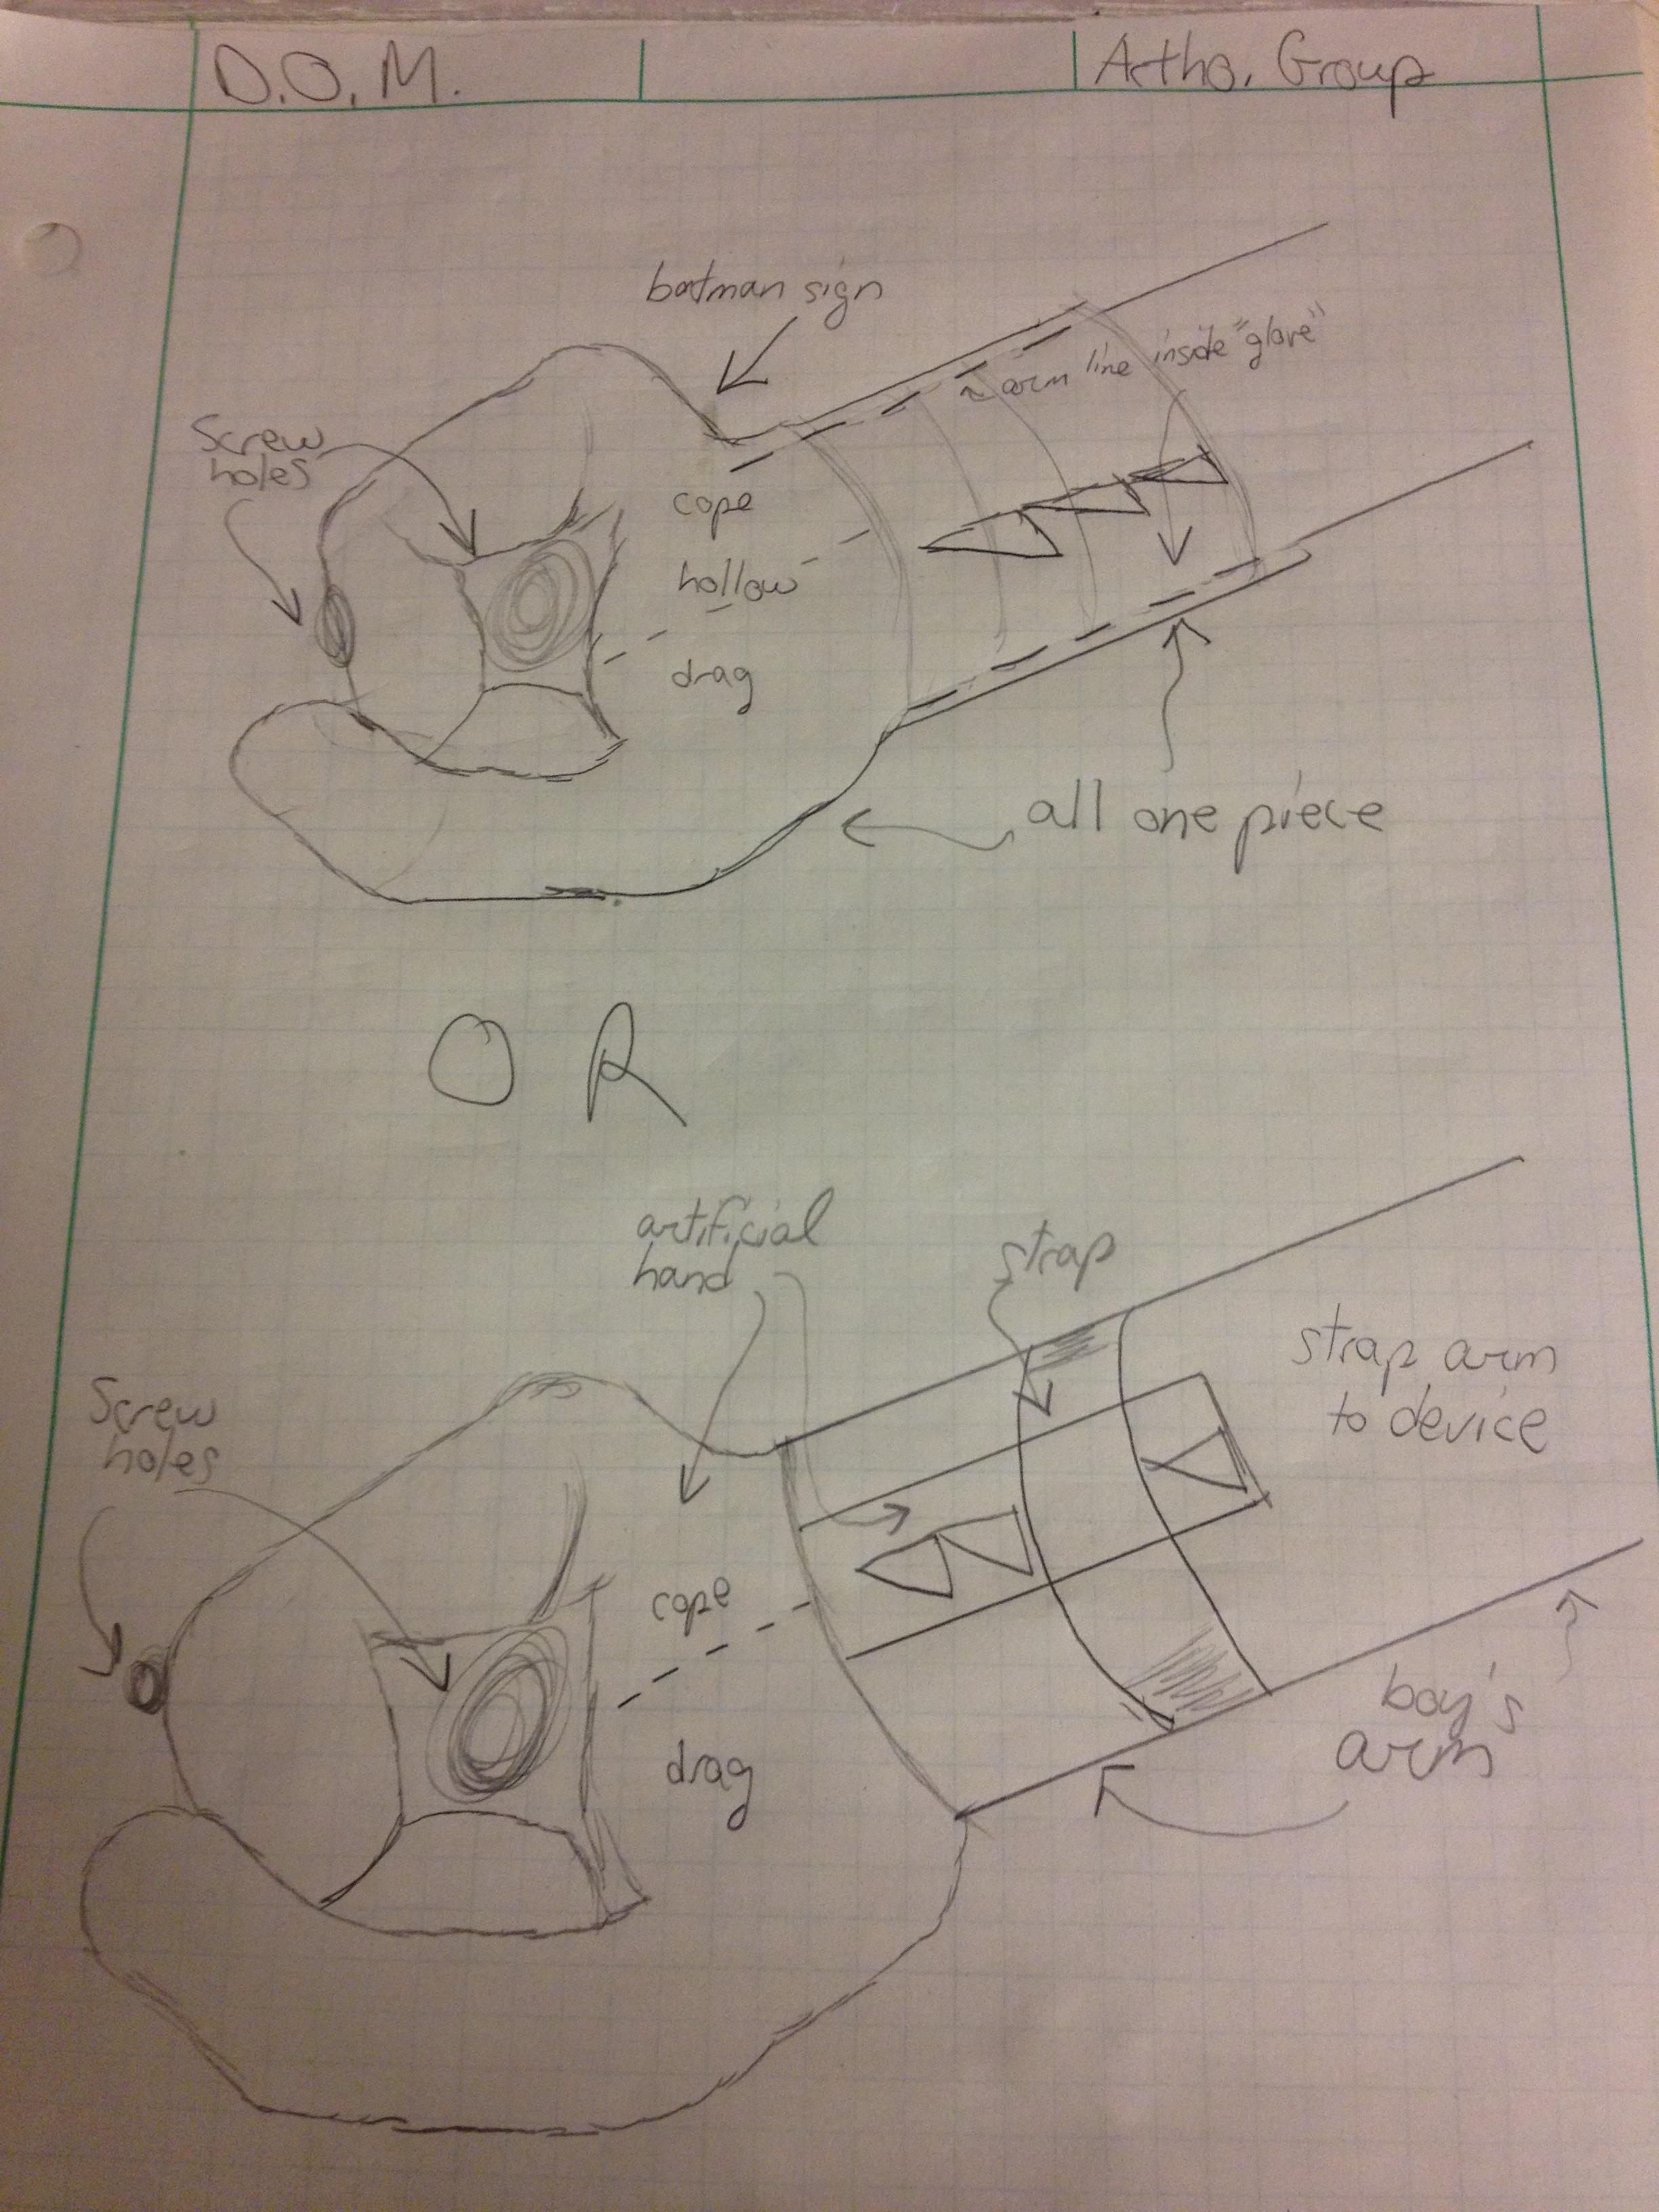 D.O.M.
Artho. Group
batman sign
arm line inside "glove"
Screw
holes
cope
hollow
drag
all one piece
OR
artificial
hand
strap
strap arm
to device
Screw
holes
cope
drag
boy's
arm